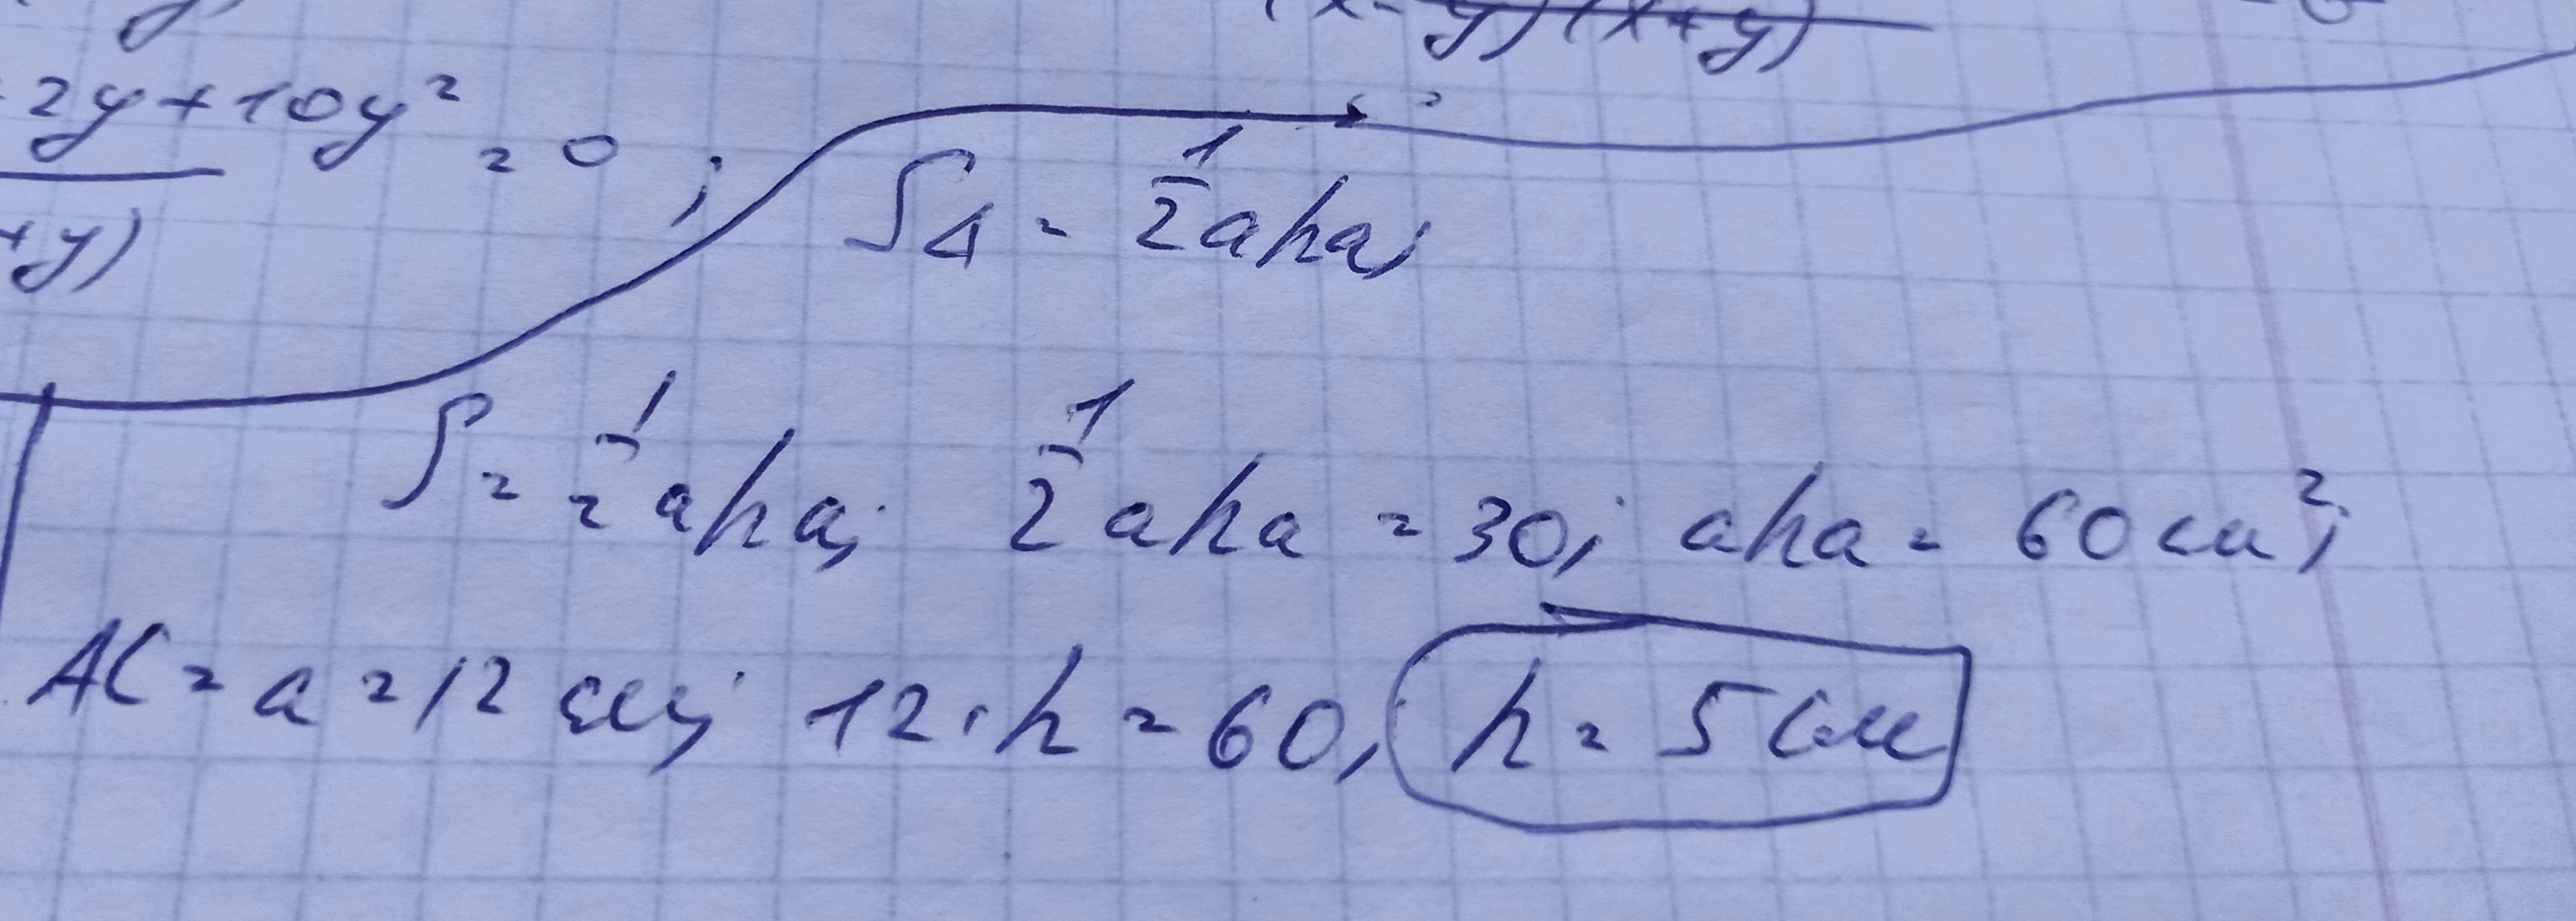 (x-y)(x+y)
2y+10y² = 0;
+y)
S△ = 1/2 aha;
S = 1/2 aha; 1/2 aha = 30; aha = 60 см²;
AC = a = 12 см; 12·h = 60, h = 5 см